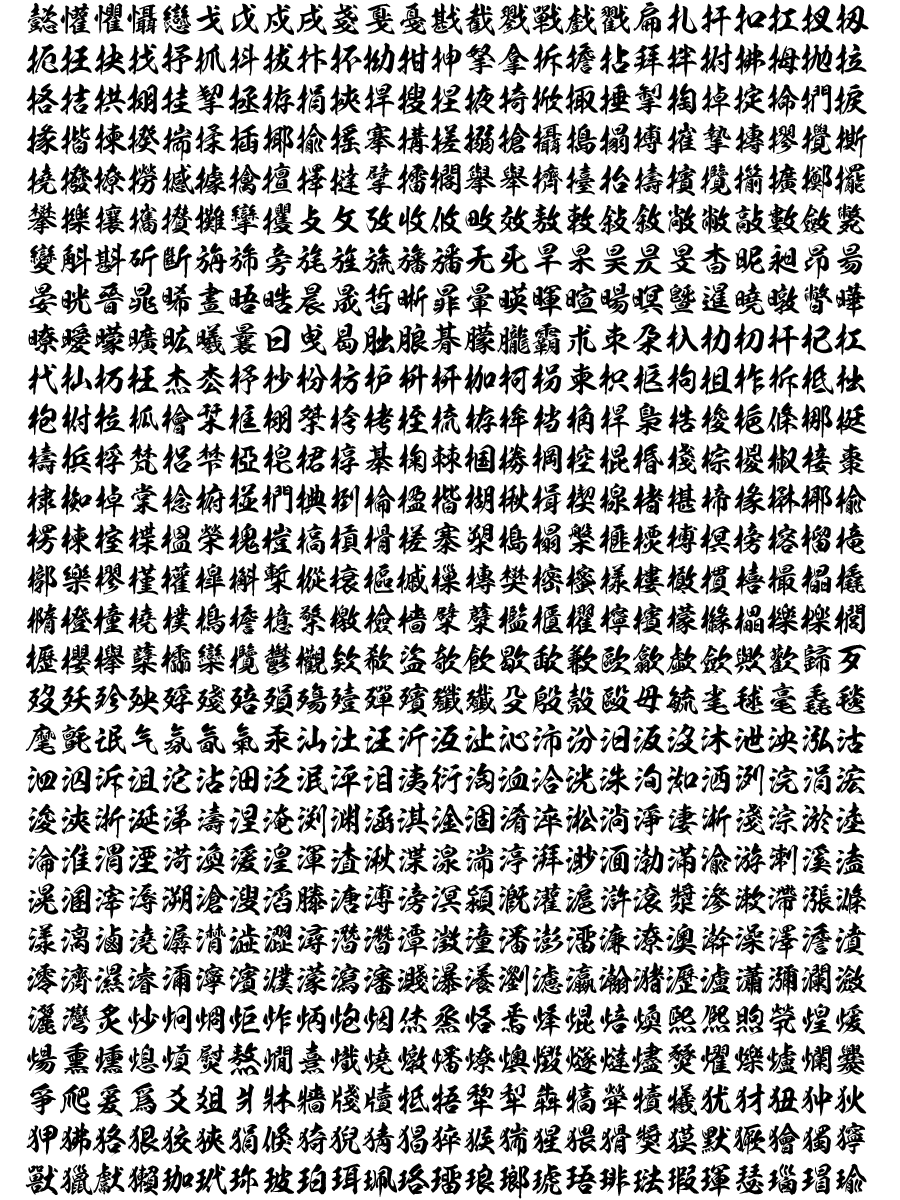 懿懽懼懾戀戈戉戍戌戔戛戞戡截戮戰戲戳扁扎扞扣扛扠扨
扼抂抉找抒抓抖拔抃抔拗拑抻拏拿拆擔拈拜拌拊拂拇抛拉
挌拮拱挧挂挈拯拵捐挾捍搜捏掖掎掀掫捶掣掏掉掟掵捫捩
掾揩揀揆揣揉插揶揄搖搴搆搓搦搶攝搗搨搏摧摯摶摎攪撕
撓撥撩撈撼據擒擅擇撻擘擂擱擧舉擠擡抬擣擯攬擶擴擲擺
攀擽攘攜攅攤攣攫攴攵攷收攸畋效敖敕敍敘敞敝敲數斂斃
變斛斟斫斷旃旆旁旄旌旒旛旙无旡旱杲昊昃旻杳昵昶昴昜
晏晄晉晁晞晝晤晧晨晟晢晰暃暈暎暉暄暘暝曁暹曉暾暼曄
暸曖曚曠昿曦曩曰曵曷朏朖朞朦朧霸朮朿朶杁朸朷杆杞杠
杙杣杤枉杰枩杼杪枌枋枦枡枅枷柯枴柬枳柩枸柤柞柝柢柮
枹柎柆柧檜栞框栩桀桍栲桎梳栫桙档桷桿梟梏梭梔條梛梃
檮梹桴梵梠梺椏梍桾椁棊椈棘椢椦棡椌棍棔棧棕椶椒椄棗
棣椥棹棠棯椨椪椚椣椡棆楹楷楜楸楫楔楾楮椹楴椽楙椰楡
楞楝榁楪榲榮槐榿槁槓榾槎寨槊槝榻槃榧樮榑榠榜榕榴槞
槨樂樛槿權槹槲槧樅榱樞槭樔槫樊樒櫁樣樓橄樌橲樶橸橇
橢橙橦橈樸樢檐檍檠檄檢檣檗蘗檻櫃櫂檸檳檬櫞櫑櫟檪櫚
櫪櫻欅蘖櫺欒欖鬱欟欸欷盜欹飮歇歃歉歐歙歔歛歟歡歸歹
歿殀殄殃殍殘殕殞殤殪殫殯殲殱殳殷殼毆毋毓毟毬毫毳毯
麾氈氓气氛氤氣汞汕汢汪沂沍沚沁沛汾汨汳沒沐泄泱泓沽
泗泅泝沮沱沾沺泛泯泙泪洟衍洶洫洽洸洙洵洳洒洌浣涓浤
浚浹浙涎涕濤涅淹渕渊涵淇淦涸淆淬淞淌淨淒淅淺淙淤淕
淪淮渭湮渮渙湲湟渾渣湫渫湶湍渟湃渺湎渤滿渝游溂溪溘
滉溷滓溽溯滄溲滔滕溏溥滂溟潁漑灌滬滸滾漿滲漱滯漲滌
漾漓滷澆潺潸澁澀潯潛濳潭澂潼潘澎澑濂潦澳澣澡澤澹濆
澪濟濕濬濔濘濱濮濛瀉瀋濺瀑瀁瀏濾瀛瀚潴瀝瀘瀟瀰瀾瀲
灑灣炙炒炯烱炬炸炳炮烟烋烝烙焉烽焜焙煥煕熈煦煢煌煖
煬熏燻熄熕熨熬燗熹熾燒燉燔燎燠燬燧燵燼燹燿爍爐爛爨
爭爬爰爲爻爼爿牀牆牋牘牴牾犂犁犇犒犖犢犧犹犲狃狆狄
狎狒狢狠狡狹狷倏猗猊猜猖猝猴猯猩猥猾獎獏默獗獪獨獰
獸獵獻獺珈玳珎玻珀珥珮珞璢琅瑯琥珸琲琺瑕琿瑟瑙瑁瑜